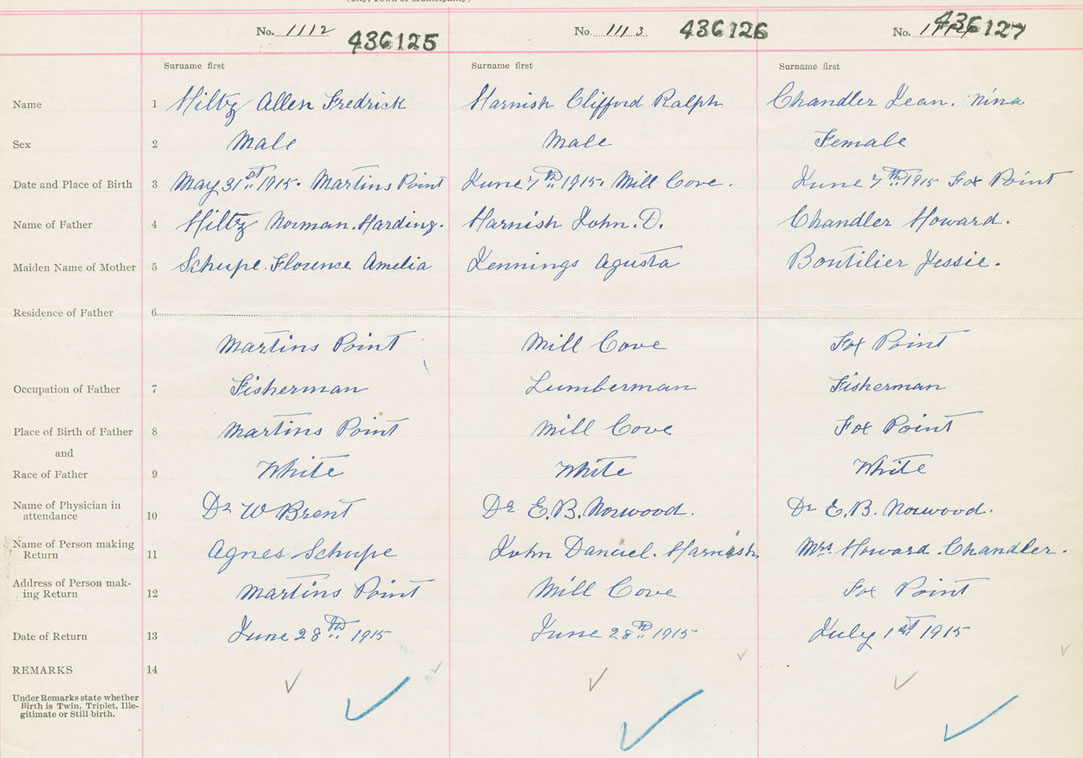 No. 1112 436125 No. 1113 436126 No. 436127
Surname first Surname first Surname first
Name 1 Hiltz Allen Fredrick Harnish Clifford Ralph Chandler Jean. Nina
Sex 2 Male Male Female
Date and Place of Birth 3 May 31st 1915. Martins Point June 7th 1915. Mill Cove. June 7th 1915 Fox Point
Name of Father 4 Hiltz Norman. Harding. Harnish John. D. Chandler Howard.
Maiden Name of Mother 5 Schupe. Florence Amelia Jennings Agusta Boutilier Jessie.
Residence of Father 6
Martins Point Mill Cove Fox Point
Occupation of Father 7 Fisherman Lumberman Fisherman
Place of Birth of Father 8 Martins Point Mill Cove Fox Point
and
Race of Father 9 White White White
Name of Physician in
attendance 10 Dr W Brent Dr E.B. Norwood. Dr E.B. Norwood.
Name of Person making
Return 11 Agnes Schupe John Daniel. Harnish Mrs. Howard. Chandler.
Address of Person mak-
ing Return 12 Martins Point Mill Cove Fox Point
Date of Return 13 June 28th 1915 June 28th 1915 July 1st 1915
REMARKS 14
Under Remarks state whether
Birth is Twin, Triplet, Ille-
gitimate or Still-birth.